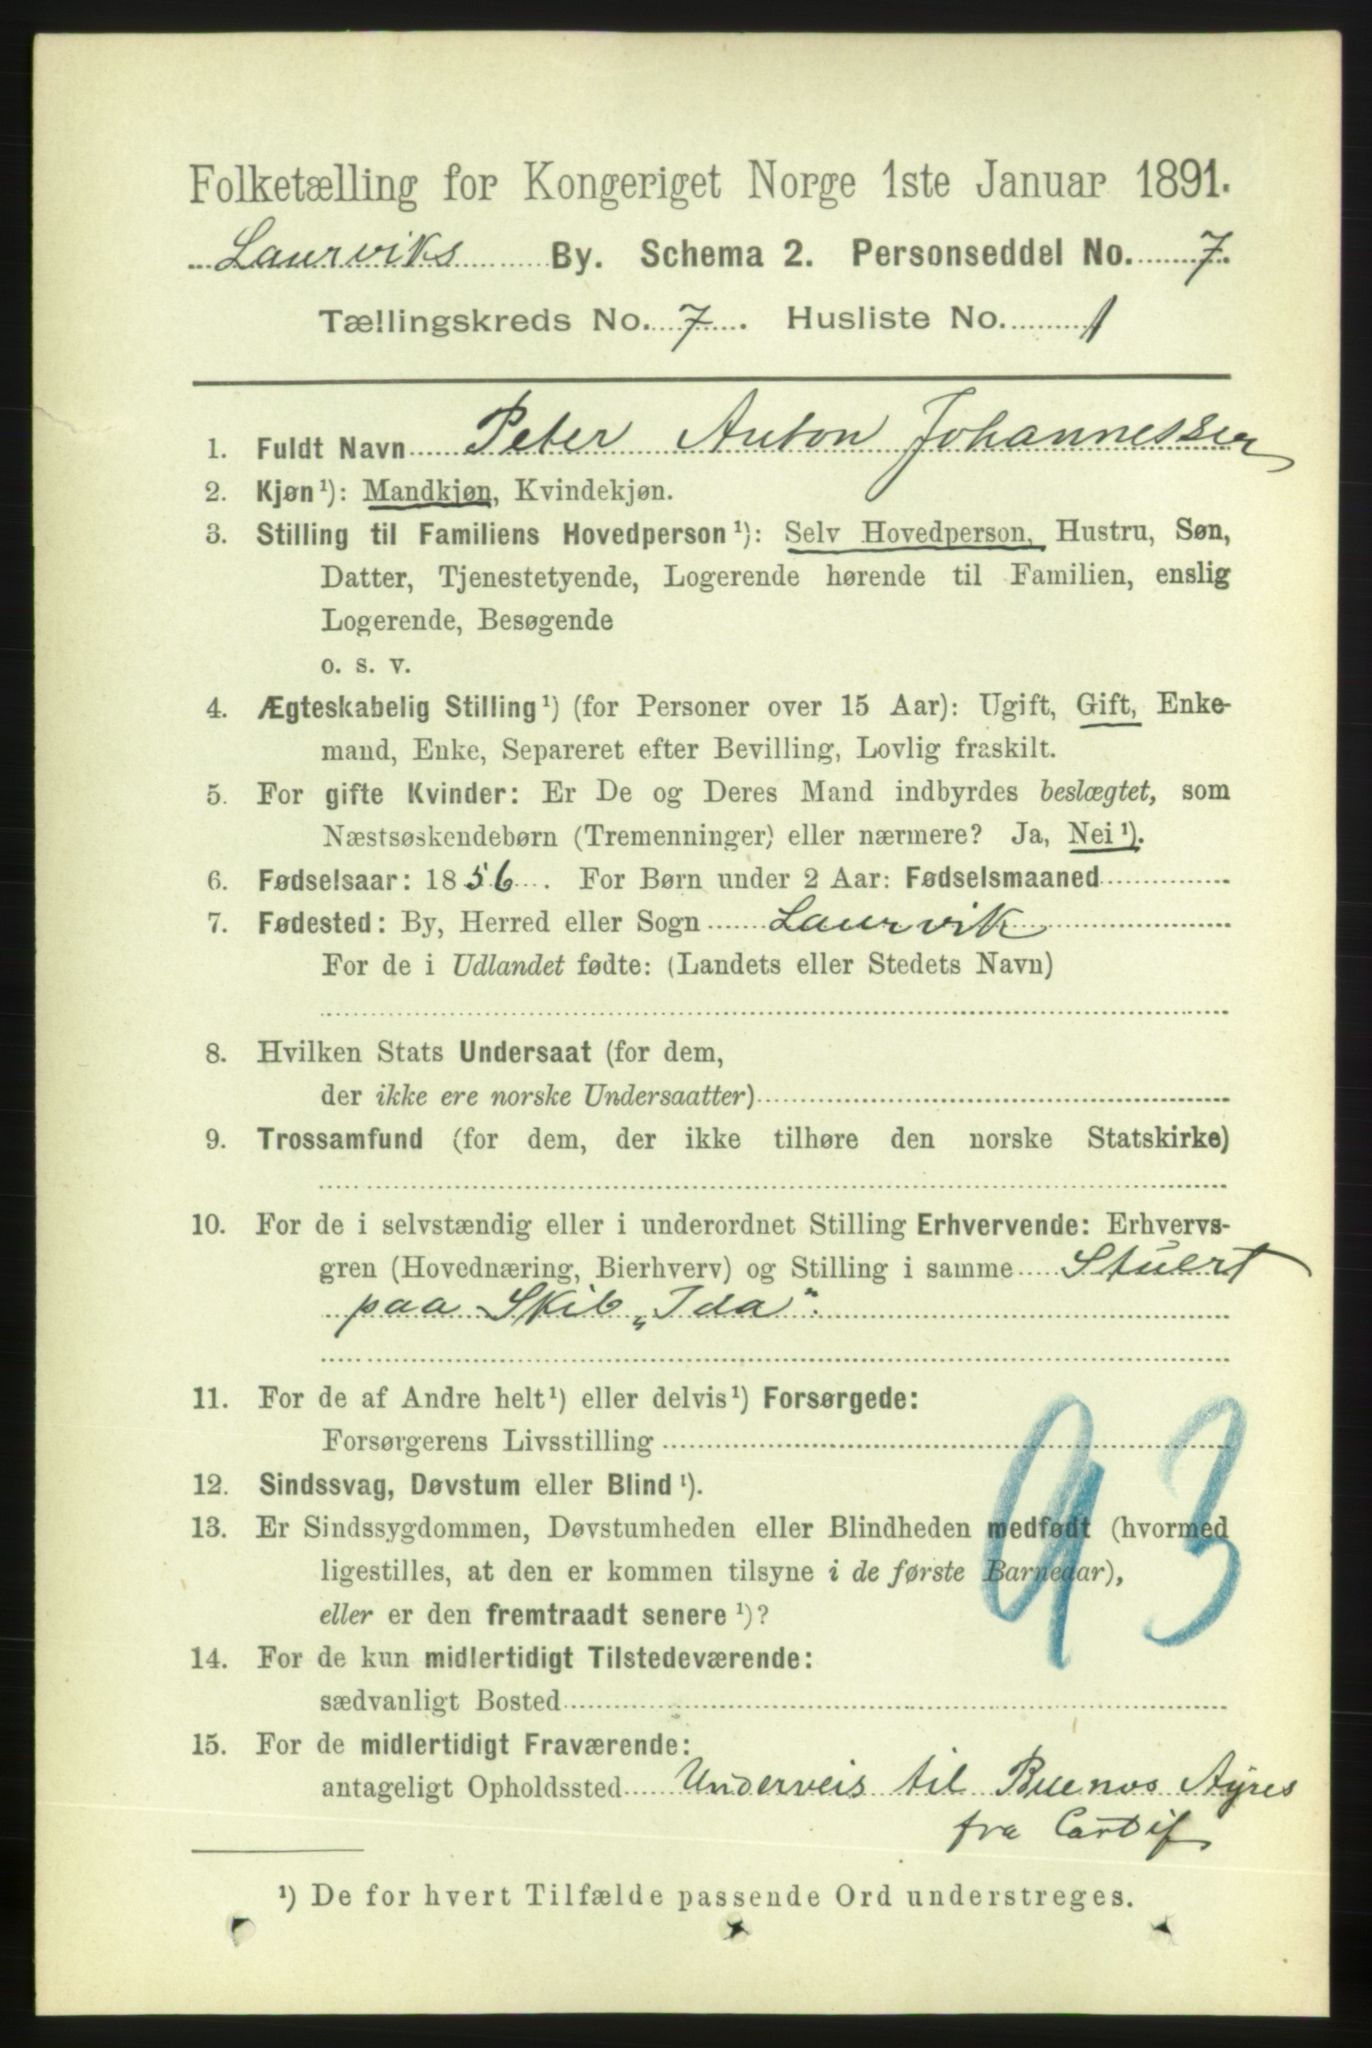 Folketælling for Kongeriget Norge 1ste Januar 1891.
Laurviks By. Schema 2. Personseddel No. 7.
Tællingskreds No. 7. Husliste No. 1
1. Fuldt Navn Peter Anton Johannessen
2. Kjøn¹): Mandkjøn, Kvindekjøn.
3. Stilling til Familiens Hovedperson¹): Selv Hovedperson, Hustru, Søn,
Datter, Tjenestetyende, Logerende hørende til Familien, enslig
Logerende, Besøgende
o. s. v.
4. Ægteskabelig Stilling¹) (for Personer over 15 Aar): Ugift, Gift, Enke-
mand, Enke, Separeret efter Bevilling, Lovlig fraskilt.
5. For gifte Kvinder: Er De og Deres Mand indbyrdes beslægtet, som
Næstsøskendebørn (Tremenninger) eller nærmere? Ja, Nei¹).
6. Fødselsaar: 1856. For Børn under 2 Aar: Fødselsmaaned
7. Fødested: By, Herred eller Sogn Laurvik
For de i Udlandet fødte: (Landets eller Stedets Navn)
8. Hvilken Stats Undersaat (for dem,
der ikke ere norske Undersaatter)
9. Trossamfund (for dem, der ikke tilhøre den norske Statskirke)
10. For de i selvstændig eller i underordnet Stilling Erhvervende: Erhvervs-
gren (Hovednæring, Bierhverv) og Stilling i samme Stuert
paa Skib „Ida“.
11. For de af Andre helt¹) eller delvis¹) Forsørgede:
Forsørgerens Livsstilling
12. Sindssvag, Døvstum eller Blind¹).
13. Er Sindssygdommen, Døvstumheden eller Blindheden medfødt (hvormed
ligestilles, at den er kommen tilsyne i de første Barneaar),
eller er den fremtraadt senere¹)?
93
14. For de kun midlertidigt Tilstedeværende:
sædvanligt Bosted
15. For de midlertidigt Fraværende:
antageligt Opholdssted Underveis til Buenos Ayres
fra Cardif
¹) De for hvert Tilfælde passende Ord understreges.